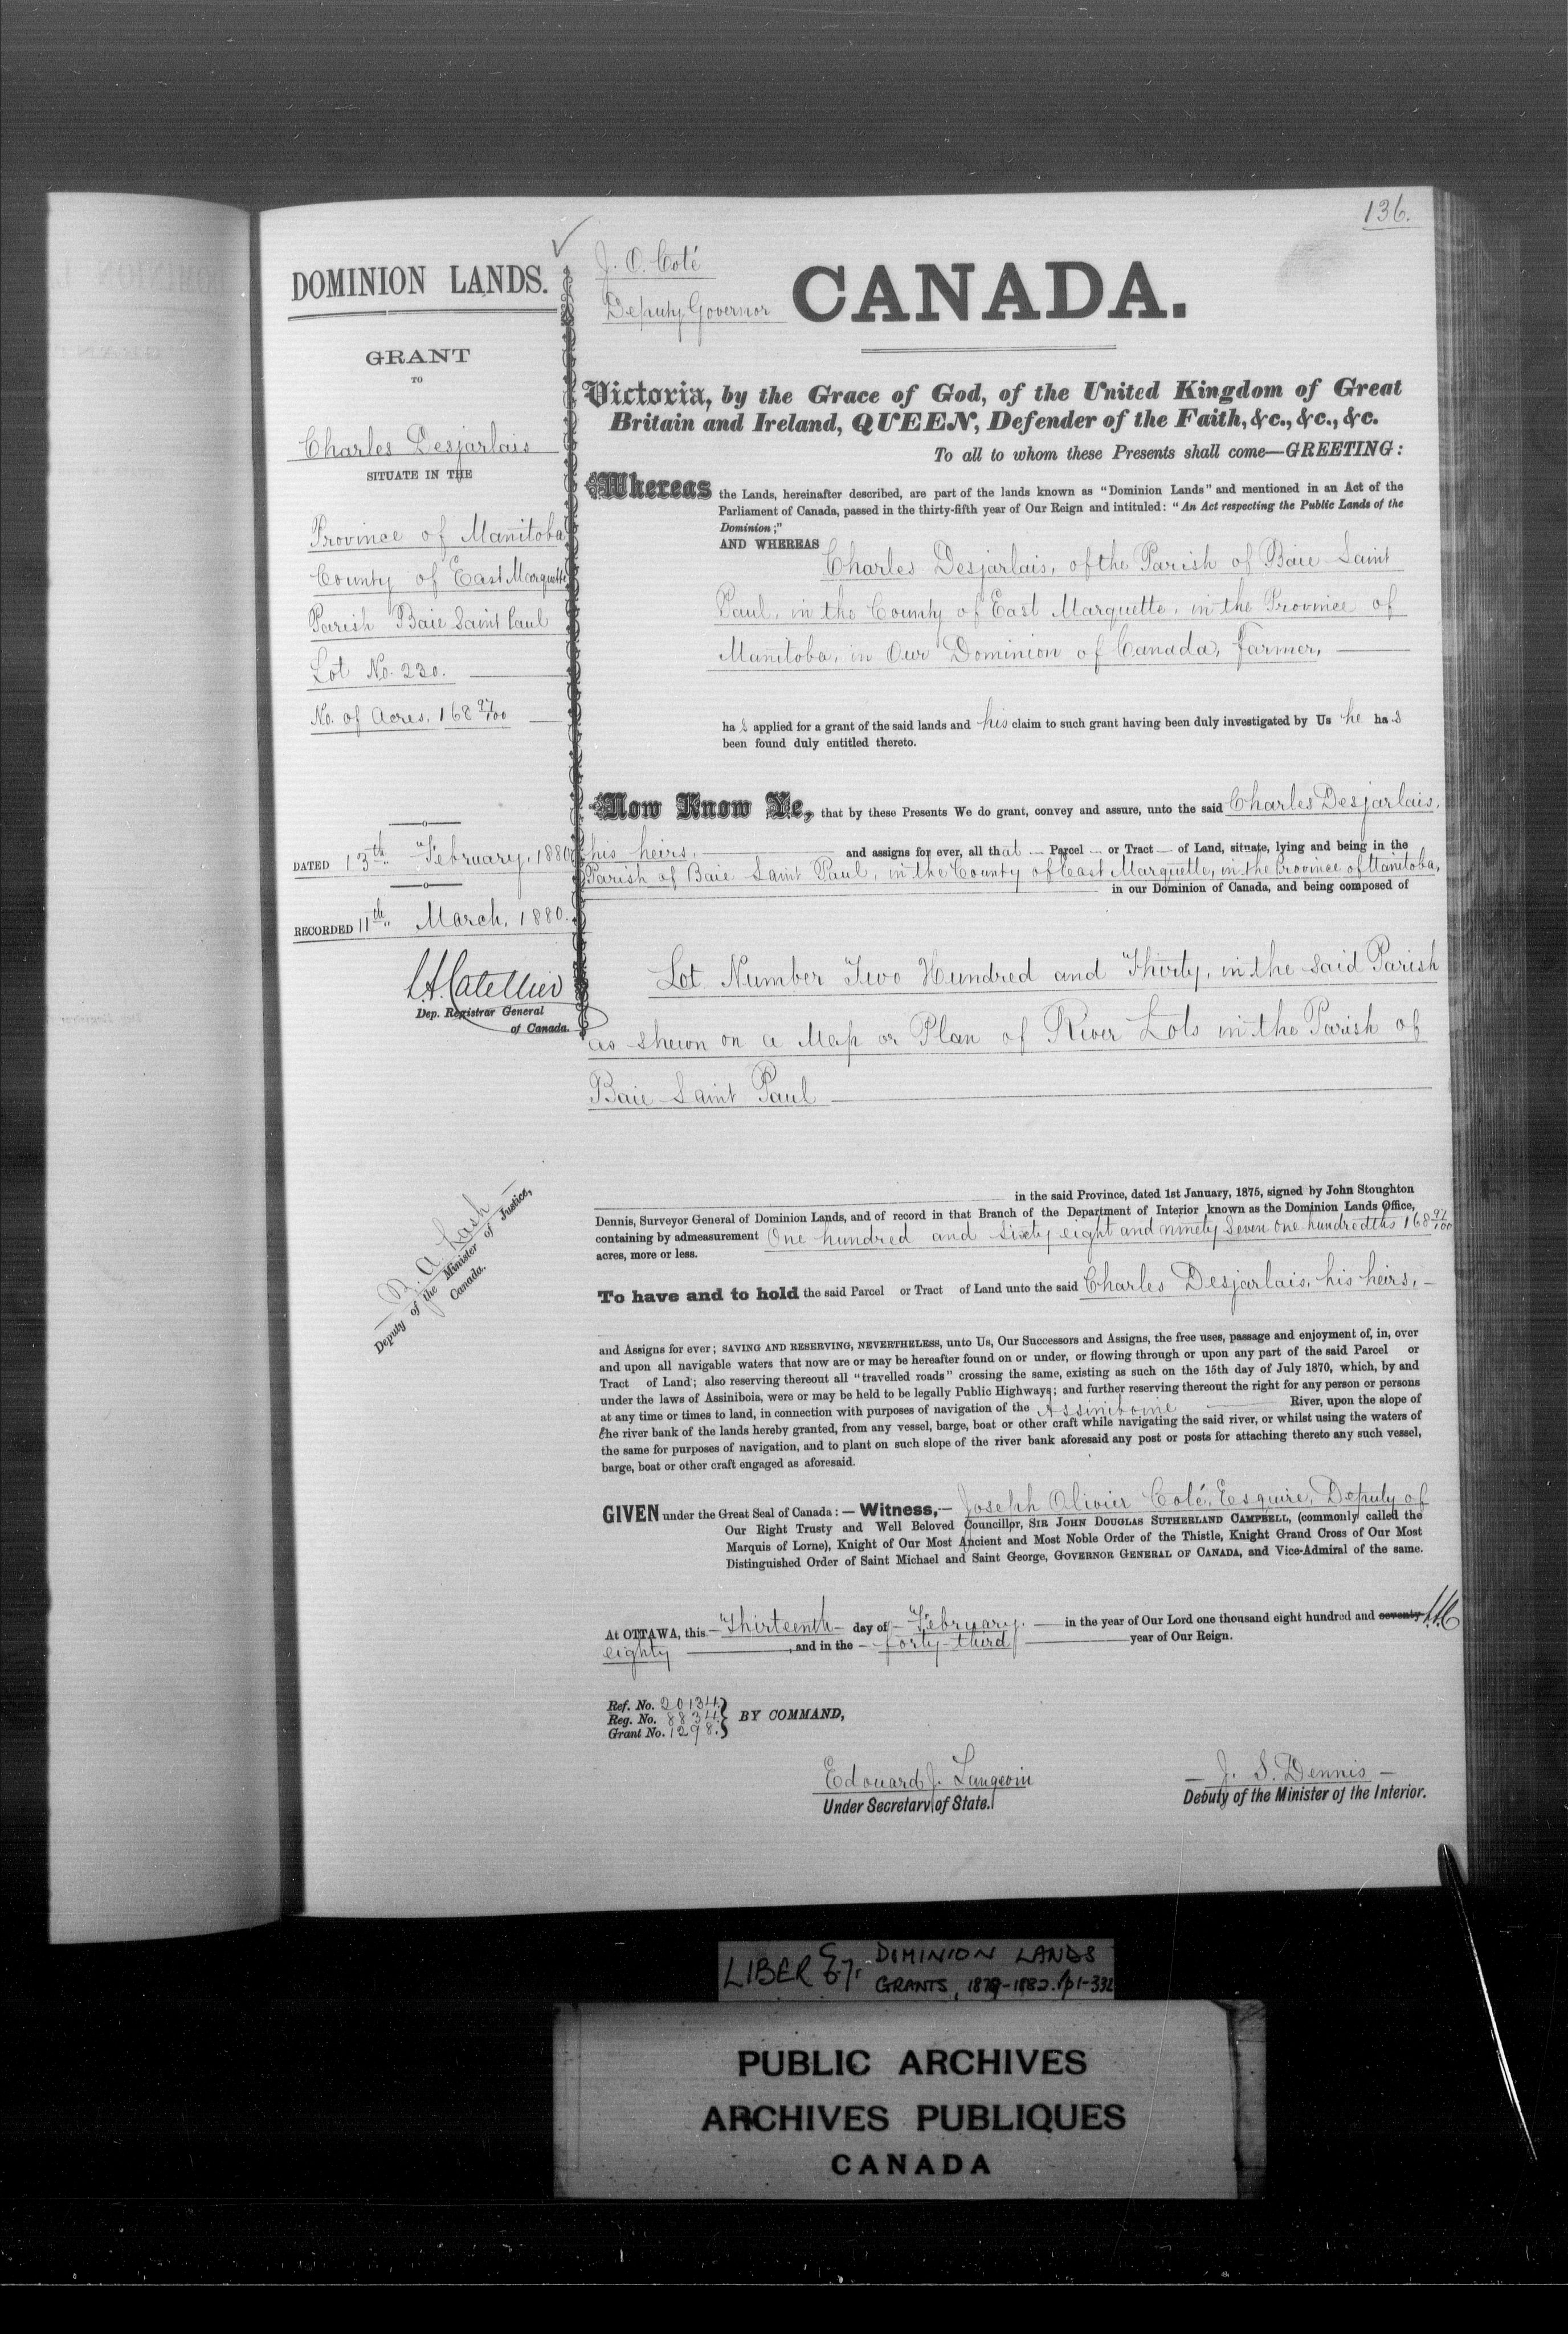 136.
DOMINION LANDS.
GRANT
TO
Charles Desjarlais
SITUATE IN THE
Province of Manitoba
County of East Marquette
Parish Baie Saint Paul
Lot No. 230.
No. of Acres, 168 97/100
DATED 13th February, 1880
RECORDED 11th March, 1880.
Dep. Registrar General
of Canada.
Z. A. Lash
Deputy of the Minister of Justice,
Canada.
J. O. Coté
Deputy Governor
CANADA.
Victoria, by the Grace of God, of the United Kingdom of Great
Britain and Ireland, QUEEN, Defender of the Faith, &c., &c., &c.
To all to whom these Presents shall come—GREETING:
Whereas the Lands, hereinafter described, are part of the lands known as "Dominion Lands" and mentioned in an Act of the
Parliament of Canada, passed in the thirty-fifth year of Our Reign and intituled: "An Act respecting the Public Lands of the
Dominion;"
AND WHEREAS Charles Desjarlais, of the Parish of Baie Saint
Paul, in the County of East Marquette, in the Province of
Manitoba, in Our Dominion of Canada, Farmer,
ha s applied for a grant of the said lands and his claim to such grant having been duly investigated by Us he ha s
been found duly entitled thereto.
Now Know Ye, that by these Presents We do grant, convey and assure, unto the said Charles Desjarlais,
his heirs, and assigns for ever, all that Parcel or Tract of Land, situate, lying and being in the
Parish of Baie Saint Paul, in the County of East Marquette, in the Province of Manitoba,
in our Dominion of Canada, and being composed of
Lot Number Two Hundred and Thirty, in the said Parish
as shewn on a Map or Plan of River Lots in the Parish of
Baie Saint Paul
in the said Province, dated 1st January, 1875, signed by John Stoughton
Dennis, Surveyor General of Dominion Lands, and of record in that Branch of the Department of Interior known as the Dominion Lands Office,
containing by admeasurement One hundred and Sixty eight and ninety Seven one hundredths 168 97/100
acres, more or less.
To have and to hold the said Parcel or Tract of Land unto the said Charles Desjarlais, his heirs,
and Assigns for ever; SAVING AND RESERVING, NEVERTHELESS, unto Us, Our Successors and Assigns, the free uses, passage and enjoyment of, in, over
and upon all navigable waters that now are or may be hereafter found on or under, or flowing through or upon any part of the said Parcel or
Tract of Land; also reserving thereout all "travelled roads" crossing the same, existing as such on the 15th day of July 1870, which, by and
under the laws of Assiniboia, were or may be held to be legally Public Highways; and further reserving thereout the right for any person or persons
at any time or times to land, in connection with purposes of navigation of the Assiniboine River, upon the slope of
the river bank of the lands hereby granted, from any vessel, barge, boat or other craft while navigating the said river, or whilst using the waters of
the same for purposes of navigation, and to plant on such slope of the river bank aforesaid any post or posts for attaching thereto any such vessel,
barge, boat or other craft engaged as aforesaid.
GIVEN under the Great Seal of Canada:—Witness,— Joseph Olivier Coté, Esquire, Deputy of
Our Right Trusty and Well Beloved Councillor, SIR JOHN DOUGLAS SUTHERLAND CAMPBELL, (commonly called the
Marquis of Lorne), Knight of Our Most Ancient and Most Noble Order of the Thistle, Knight Grand Cross of Our Most
Distinguished Order of Saint Michael and Saint George, GOVERNOR GENERAL OF CANADA, and Vice-Admiral of the same.
At OTTAWA, this Thirteenth day of February, in the year of Our Lord one thousand eight hundred and seventy
eighty, and in the forty-third year of Our Reign.
Ref. No. 20134
Reg. No. 8834
Grant No. 1298.
BY COMMAND,
Edouard J. Langevin
Under Secretary of State.
J. S. Dennis
Deputy of the Minister of the Interior.
LIBER
DOMINION LANDS
GRANTS, 1879-1882. pp1-332
PUBLIC ARCHIVES
ARCHIVES PUBLIQUES
CANADA